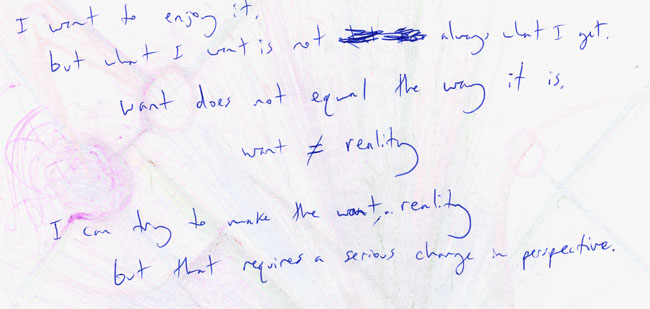 I want to enjoy it,
but what I want is not always what I get.
want does not equal the way it is.
want ≠ reality
I can try to make the want... reality
but that requires a serious change in perspective.